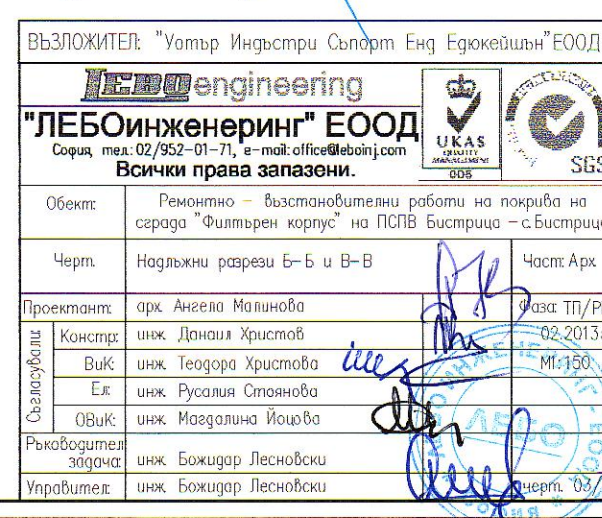 ВЪЗЛОЖИТЕЛ: "Уотър Индъстри Съпорт Енд Едюкейшън" ЕООД
LEBO engineering
"ЛЕБОинженеринг" ЕООД
София, тел.: 02/952-01-71, e-mail: office@leboinj.com
Всички права запазени.
UKAS
QUALITY
MANAGEMENT
005
SGS
Обект: Ремонтно – възстановителни работи на покрива на
сграда "Филтърен корпус" на ПСПВ Бистрица – с. Бистрица
Черт. Надлъжни разрези Б–Б и В–В Част: Арх
Проектант: арх. Ангела Малинова Фаза: ТП/Р
Съгласували:
Констр: инж. Данаил Христов 02.2013
ВиК: инж. Теодора Христова М1:150
Ел: инж. Русалия Стоянова
ОВиК: инж. Магдалина Йоцова
Ръководител
задача: инж. Божидар Лесновски
Управител: инж. Божидар Лесновски черт. 03/
ЛЕБО